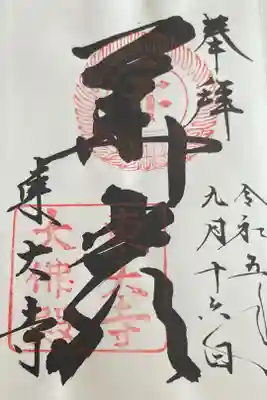 奉拝
令和五年
九月十六日
華厳
東大寺
東大寺
大佛殿